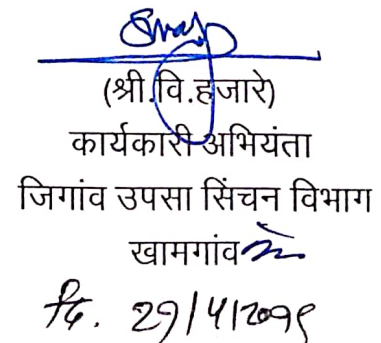 (श्री.वि.हजारे)
कार्यकारी अभियंता
जिगांव उपसा सिंचन विभाग
खामगांव
दि.